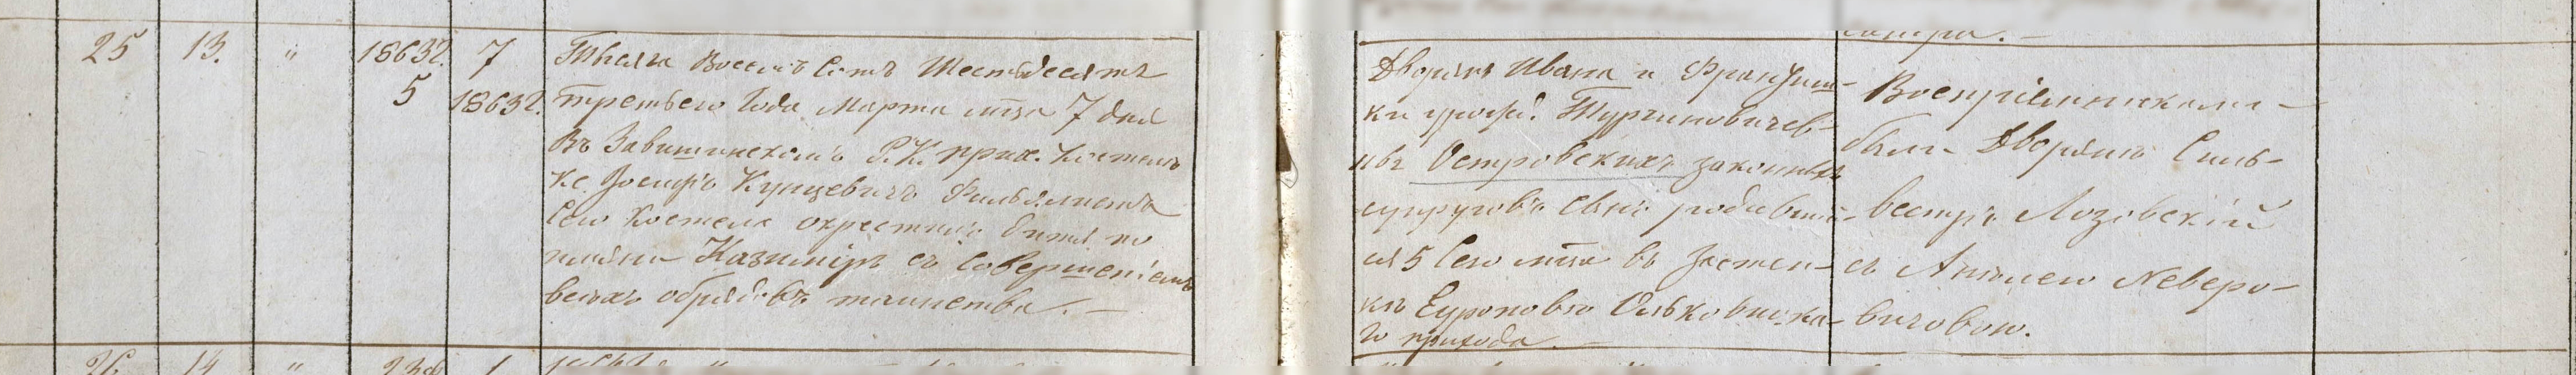 25 13. " 1863г. 7 Тысяча Восемь Сотъ Шестьдесятъ
5 1863г. третьего Года Марта мца 7 дня
въ Завишинскомъ Р. К. прих. костелѣ
кс. Іосифъ Кунцевичъ
сего Костела окрестилъ дитя по
имѣни Казиміръ съ Совершеніемъ
всѣхъ обрядовъ таинства. —
Дворянъ Ивана и Франциш-
ки урожд. Тургиновичев-
ны Островскихъ законныхъ
супруговъ сынъ родивший-
ся 5 Сего мца въ Застен-
кѣ Еуроповѣ Ольковицка-
го прихода. —
Воспріемниками —
были Дворянинъ Силь-
вестръ Лозовскій
съ Анѣлею Неверо-
вичовою.
26 14 "